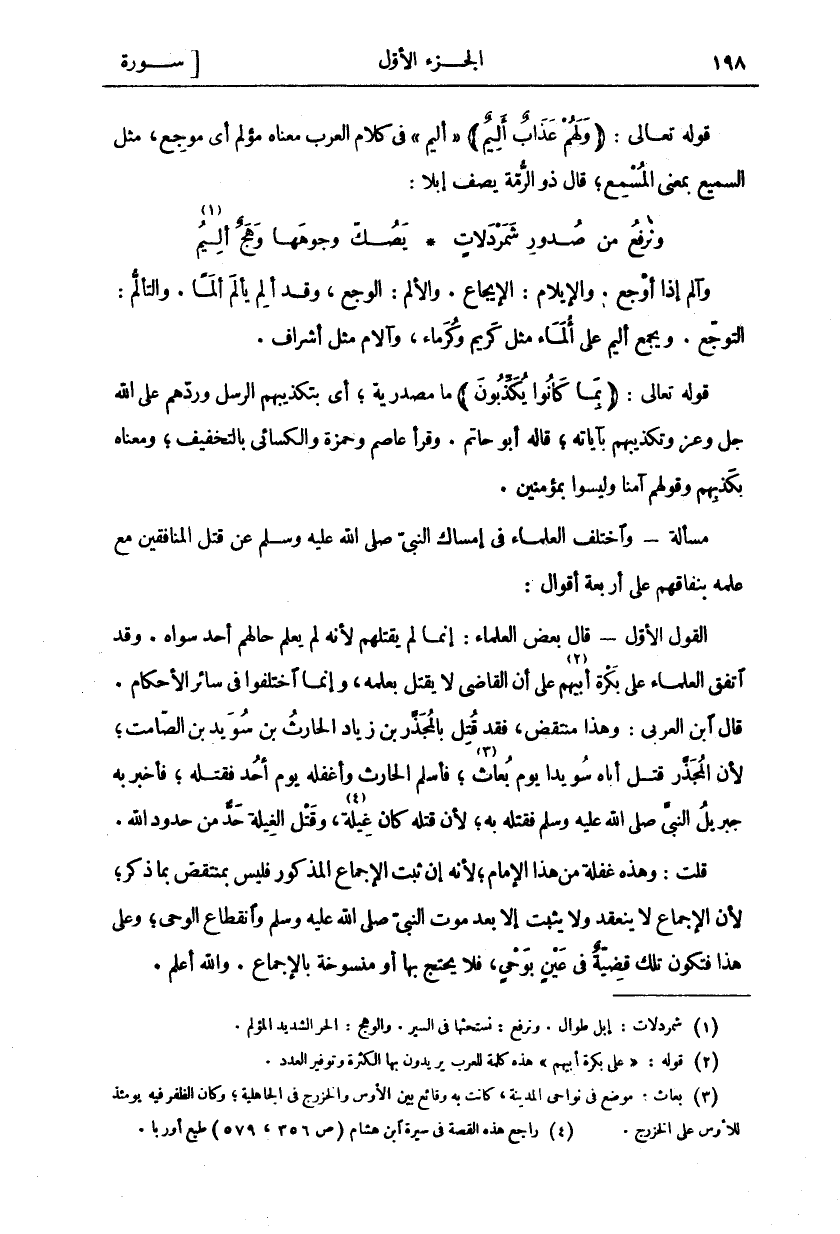 ١٩٨ الجـــزء الأوّل [ ســـورة
قوله تعـالى : ﴿ وَلَهُمْ عَذَابٌ أَلِيمٌ ﴾ « أليم » فى كلام العرب معناه مؤلم أى موجِع، مثل
السميع بمعنى المُسْمِع؛ قال ذو الرُّمّة يصف إبلا :
ونرفعُ من صُـدورِ شَمَرْدَلاتٍ * يَصُـكّ وجوهَهـا وَهَجٌ ألِـيمُ (١)
وآلم إذا أوْجع . والإيلام : الإيجاع . والألم : الوجع ، وقـد ألِم يألَم ألَمًا . والتألُّم :
التوجّع . ويجمع أليم على أُلَمَـاء مثل كَريم وكُرَماء ، وآلام مثل أشراف .
قوله تعالى : ﴿ بِمَـا كَانُوا يُكَذِّبُونَ ﴾ ما مصدرية ؛ أى بتكذيبهم الرسل وردّهم على الله
جل وعز وتكذيبهم بآياته ؛ قاله أبو حاتم . وقرأ عاصم وحمزة والكسائى بالتخفيف ؛ ومعناه
بكَذِبهم وقولهم آمنا وليسوا بمؤمنين .
مسألة — وٱختلف العلمـاء فى إمساك النبىّ صلى الله عليه وسـلم عن قتل المنافقين مع
علمه بنفاقهم على أربعة أقوال :
القول الأوّل — قال بعض العلماء : إنمـا لم يقتلهم لأنه لم يعلم حالهم أحد سواه . وقد
ٱتفق العلمـاء على بَكْرة أبيهم (٢) على أن القاضى لا يقتل بعلمه ، وإنمـا ٱختلفوا فى سائر الأحكام .
قال ٱبن العربى : وهذا منتقض، فقد قُتِل بالمُجَذَّر بن زياد الحارثُ بن سُوَيد بن الصّامت؛
لأن المُجَذَّر قتـل أباه سُويدا يوم بُعاث (٣) ؛ فأسلم الحارث وأغفله يوم أُحُد فقتـله ؛ فأخبر به
جبريلُ النبىَّ صلى الله عليه وسلم فقتله به؛ لأن قتله كان غِيلة (٤)، وقَتْل الغِيلة حَدٌّ من حدود الله .
قلت : وهذه غفلة من هذا الإمام؛ لأنه إن ثبت الإجماع المذكور فليس بمنتقض بما ذكر؛
لأن الإجماع لا ينعقد ولا يثبت إلا بعد موت النبىّ صلى الله عليه وسلم وٱنقطاع الوحى؛ وعلى
هذا فتكون تلك قضِيّةٌ فى عَيْنٍ بَوَحْىٍ، فلا يحتج بها أو منسوخة بالإجماع . والله أعلم .
(١) شمردلات : إبل طوال . ونرفع : نستحثها فى السير . والوهج : الحر الشديد المؤلم .
(٢) قوله : « على بكرة أبيهم » هذه كلمة للعرب يريدون بها الكثرة وتوفير العدد .
(٣) بعاث : موضع فى نواحى المدينة ، كانت به وقائع بين الأوس والخزرج فى الجاهلية ؛ وكان الظفر فيه يومئذ
للأوس على الخزرج . (٤) راجع هذه القصة فى سيرة ٱبن هشام ( ص ٣٥٦ ، ٥٧٩ ) طبع أوربا .